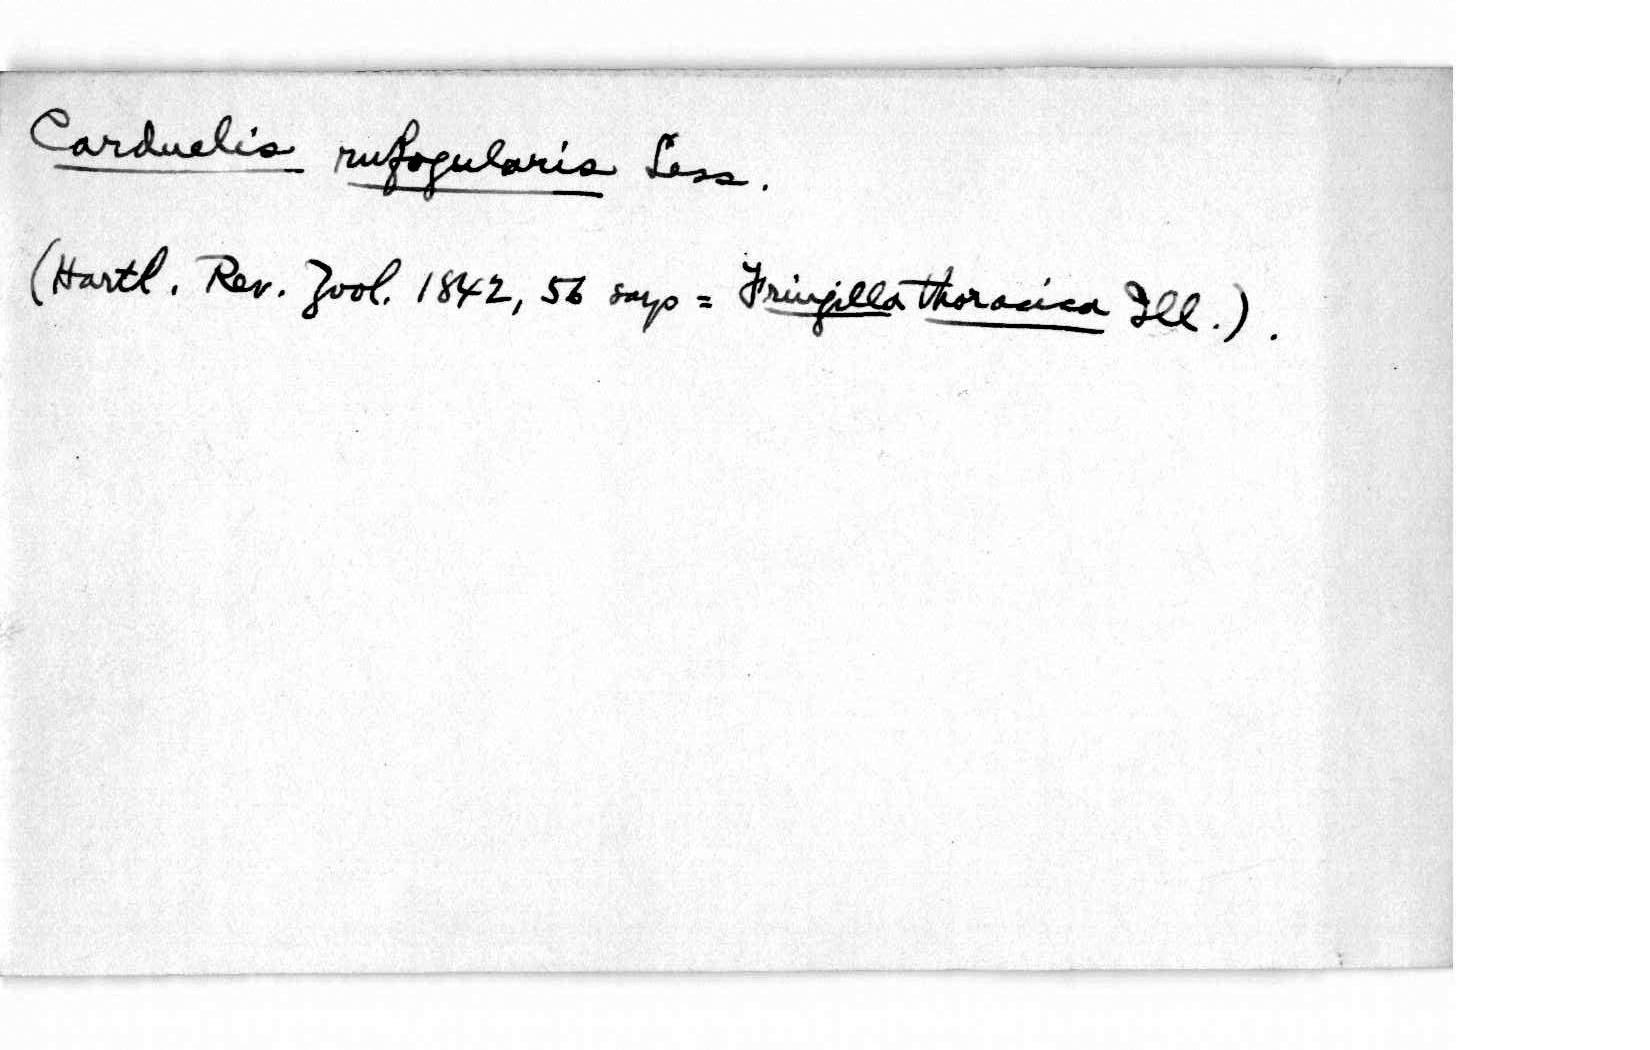 Carduelis rufogularis Less.
(Hartl. Rev. Zool. 1842, 56 says = Fringilla thoracica Ill.).